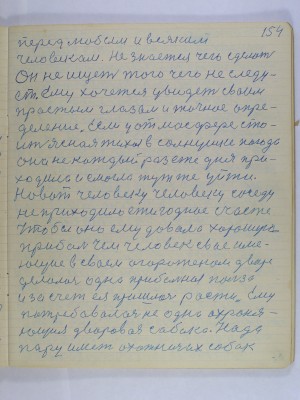 159
перед мовсем и всяким
человекам. Не знается чего сделать
Он не ищет того чего не следу-
ет. Ему хочется увидеть своим
простым глазам и точное опре-
деление. Если у атмасфере сто-
ит ясная тихая в солнушке погода
она не каждый раз сте дня при-
ходила и смогла тут же уйти.
человеку человеку соседу
не приходило счастье
Чтобы оно ему давала
прибыл чем человек свае име-
ющие в своем огороженом дваре
делалая одна прибыльная польза
и за счет ея пришлося расти, Ему
потребавалая не одна охроня-
ющия дваровая сабака. Нада
пару имет охотничих собак